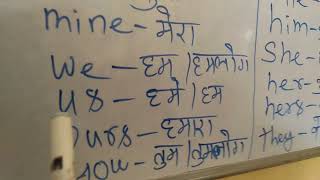 mine - मेरा
we - हम / हमलोग
us - हमे / हम
ours - हमारा
you - तुम / तुमलोग
him -
She -
her -
hers -
they -